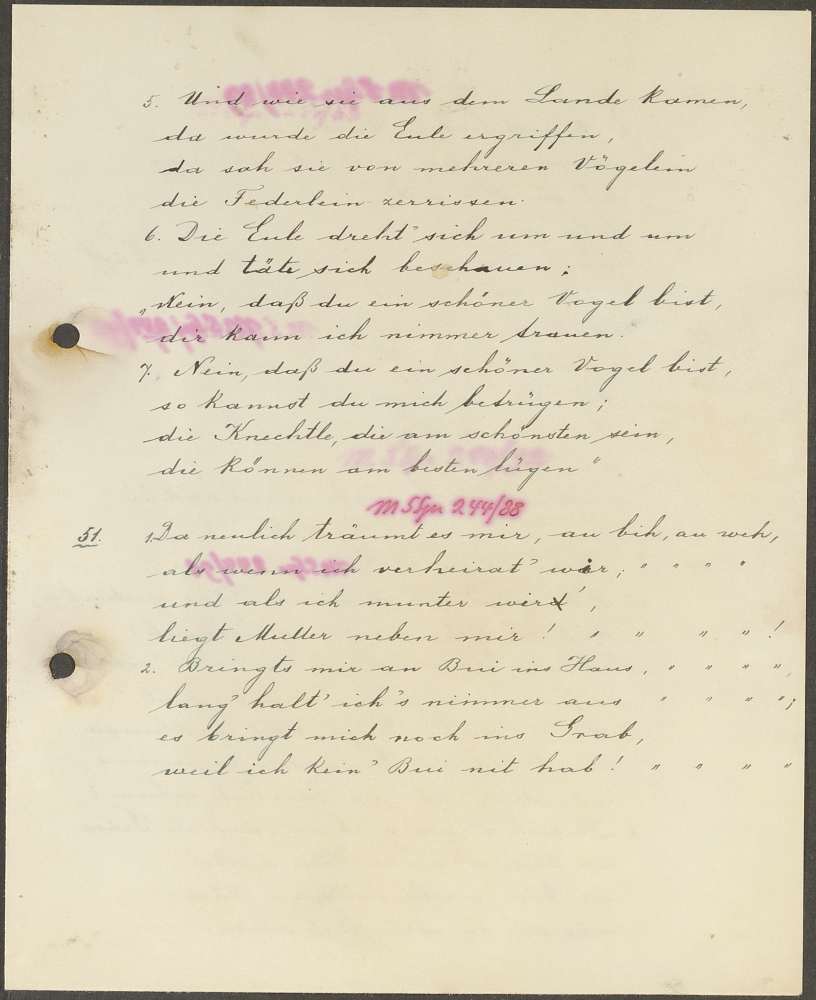 5. Und wie sie aus dem Lande kamen,
da wurde die Eule ergriffen,
da sah sie von mehreren Vögelein
die Federlein zerrissen.
6. Die Eule dreht' sich um und um
und täte sich beschauen:
„Nein, daß du ein schöner Vogel bist,
dir kann ich nimmer trauen.
7. Nein, daß du ein schöner Vogel bist,
so kannst du mich betrügen;
die Knechtle, die am schönsten sein,
die können am besten lügen"
m SSpu 244/88
51. 1. Da neulich träumt es mir, au bih, au weh,
als wenn ich verheirat' wär; " " " "
und als ich munter wird',
liegt Mutter neben mir! " " " "!
2. Bringts mir an Bui ins Haus, " " " ",
lang' halt' ich's nimmer aus " " " ";
es bringt mich noch ins Grab,
weil ich kein' Bui nit hab! " " " "